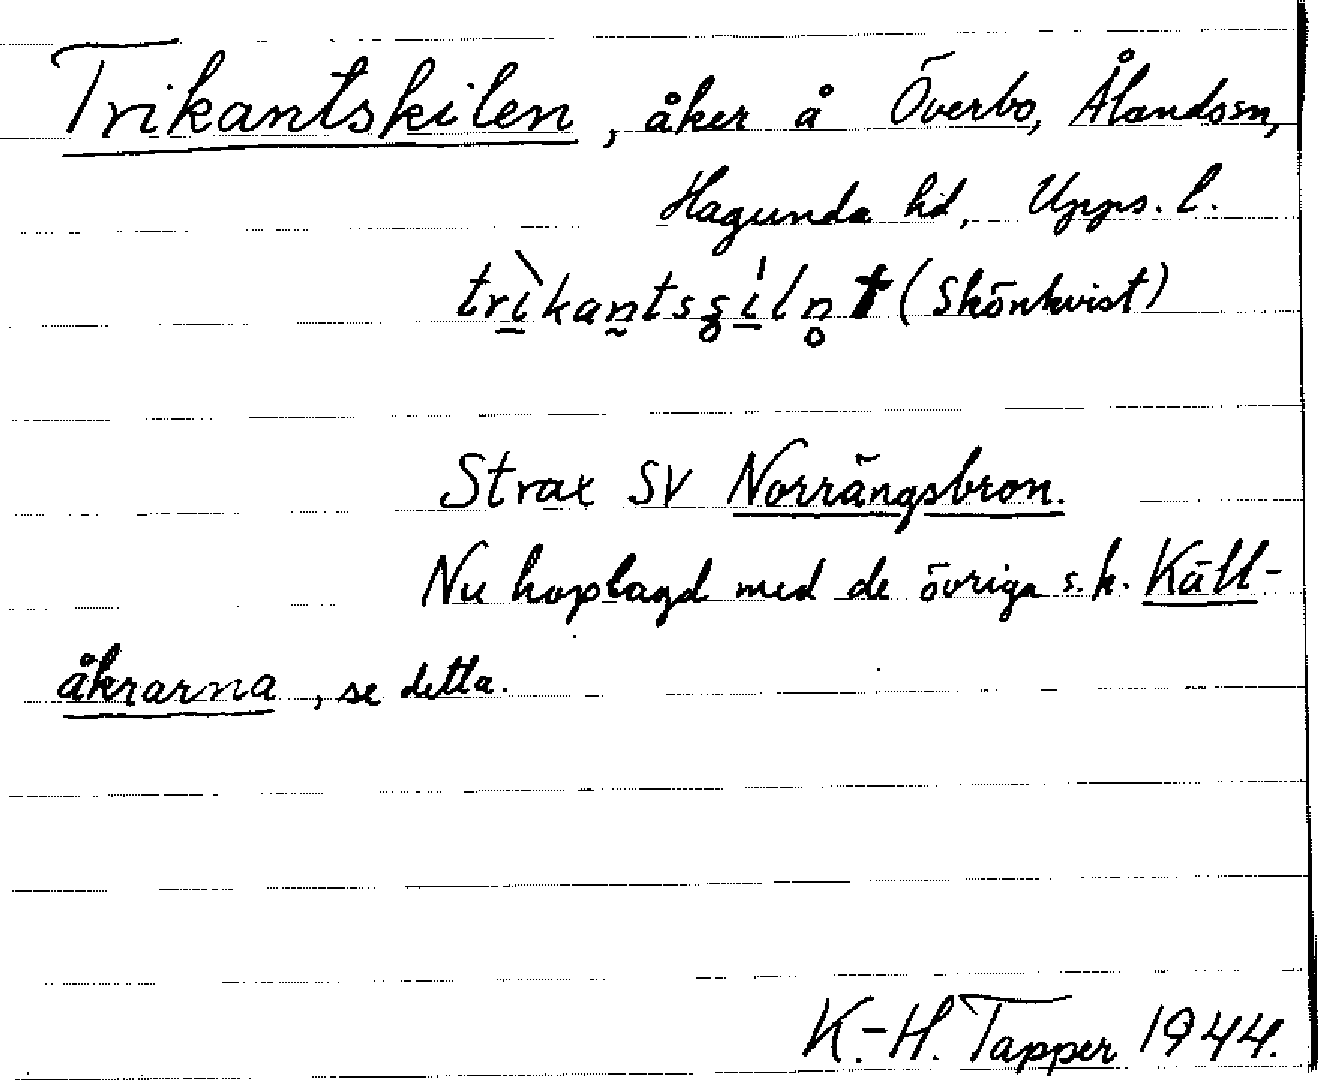 Trikantskilen, åker å Överbo, Ålandssn,
Hagunda hd, Upps. l.
trìkantsʂi̍ln̥ † (Skönkvist)
Strax SV Norrängsbron.
Nu hoplagd med de övriga s.k. Käll-
åkrarna, se detta.
K.-H. Tapper 1944.